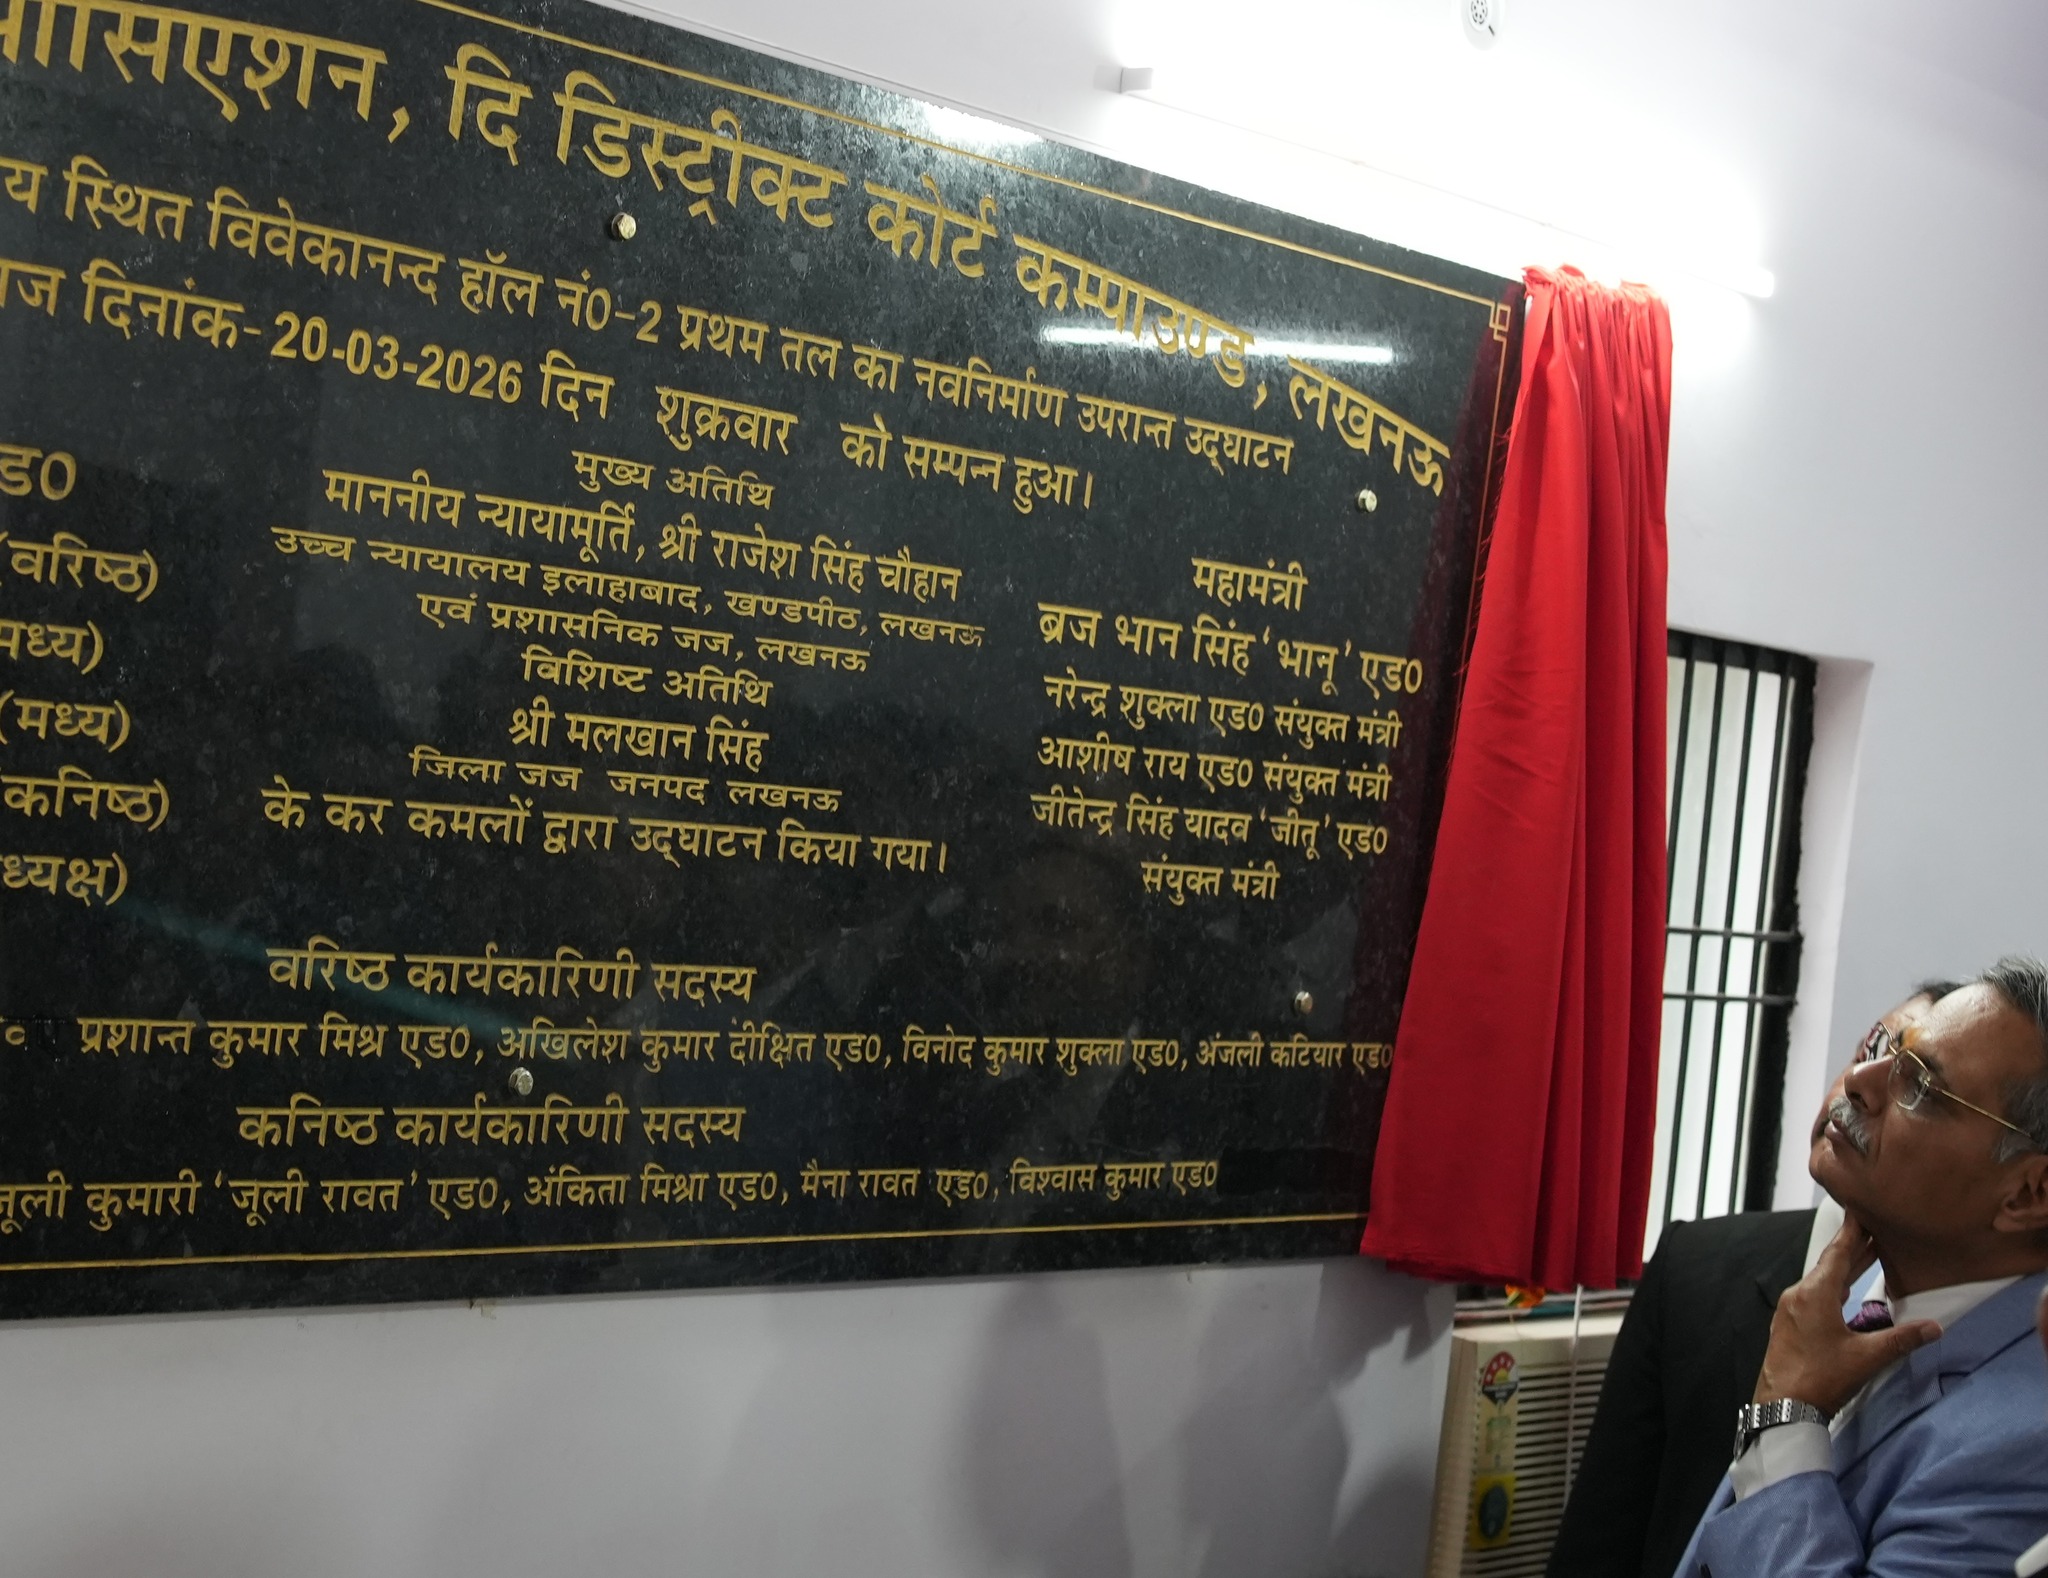 दि डिस्ट्रीक्ट कोर्ट कम्पाउण्ड, लखनऊ
स्थित विवेकानन्द हॉल नं0-2 प्रथम तल का नवनिर्माण उपरान्त उद्घाटन
दिनांक-20-03-2026 दिन शुक्रवार को सम्पन्न हुआ।
मुख्य अतिथि
माननीय न्यायामूर्ति, श्री राजेश सिंह चौहान
उच्च न्यायालय इलाहाबाद, खण्डपीठ, लखनऊ
एवं प्रशासनिक जज, लखनऊ
विशिष्ट अतिथि
श्री मलखान सिंह
जिला जज जनपद लखनऊ
के कर कमलों द्वारा उद्घाटन किया गया।
(वरिष्ठ)
(मध्य)
(कनिष्ठ)
महामंत्री
ब्रज भान सिंह ‘भानू’ एड0
नरेन्द्र शुक्ला एड0 संयुक्त मंत्री
आशीष राय एड0 संयुक्त मंत्री
जीतेन्द्र सिंह यादव ‘जीतू’ एड0
संयुक्त मंत्री
वरिष्ठ कार्यकारिणी सदस्य
प्रशान्त कुमार मिश्र एड0, अखिलेश कुमार दीक्षित एड0, विनोद कुमार शुक्ला एड0, अंजली कटियार एड0
कनिष्ठ कार्यकारिणी सदस्य
कुमारी ‘जूली रावत’ एड0, अंकिता मिश्रा एड0, मैना रावत एड0, विश्वास कुमार एड0